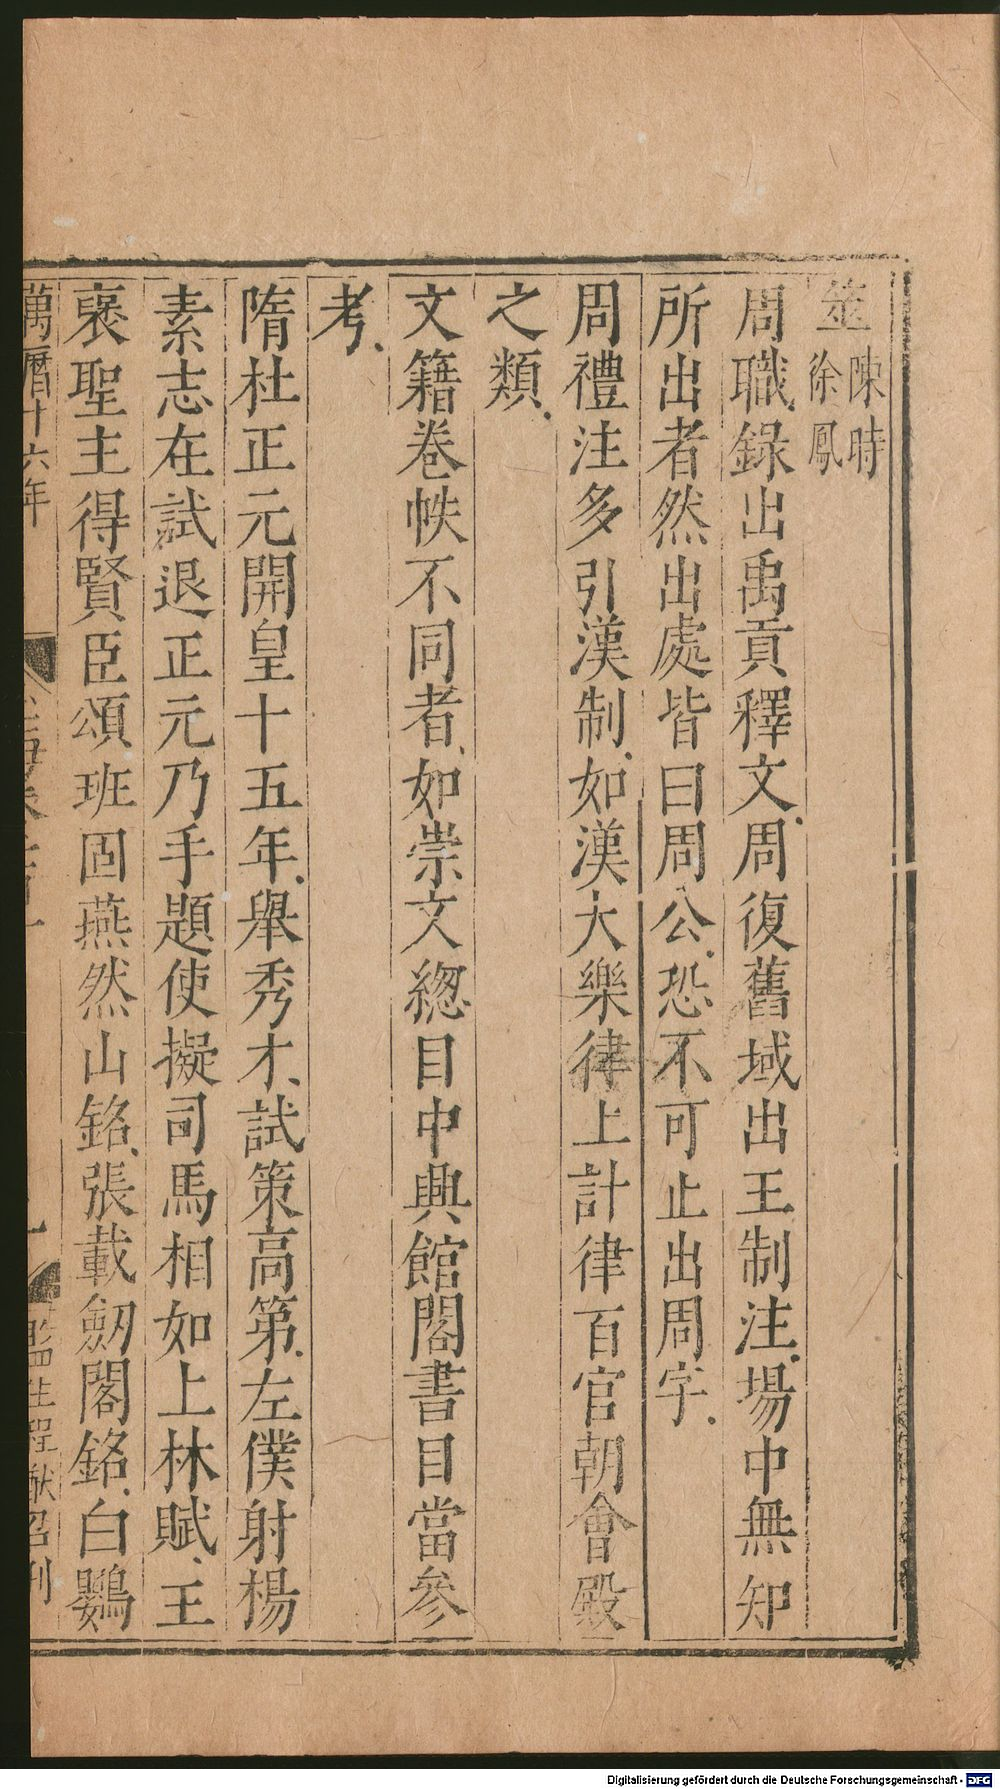 筮陳時徐鳳
周職錄出禹貢釋文周復舊域出王制注場中無知
所出者然出處皆曰周公恐不可止出周字
周禮注多引漢制如漢大樂律上計律百官朝會殿
之類
文籍卷帙不同者如崇文緫目中興館閣書目當參
考
隋杜正元開皇十五年舉秀才試策高第左僕射楊
素志在試退正元乃手題使擬司馬相如上林賦王
襃聖主得賢臣頌班固燕然山銘張載劒閣銘白鸚
萬曆十六年
監生程猷召刊
Digitalisierung gefördert durch die Deutsche Forschungsgemeinschaft - DFG